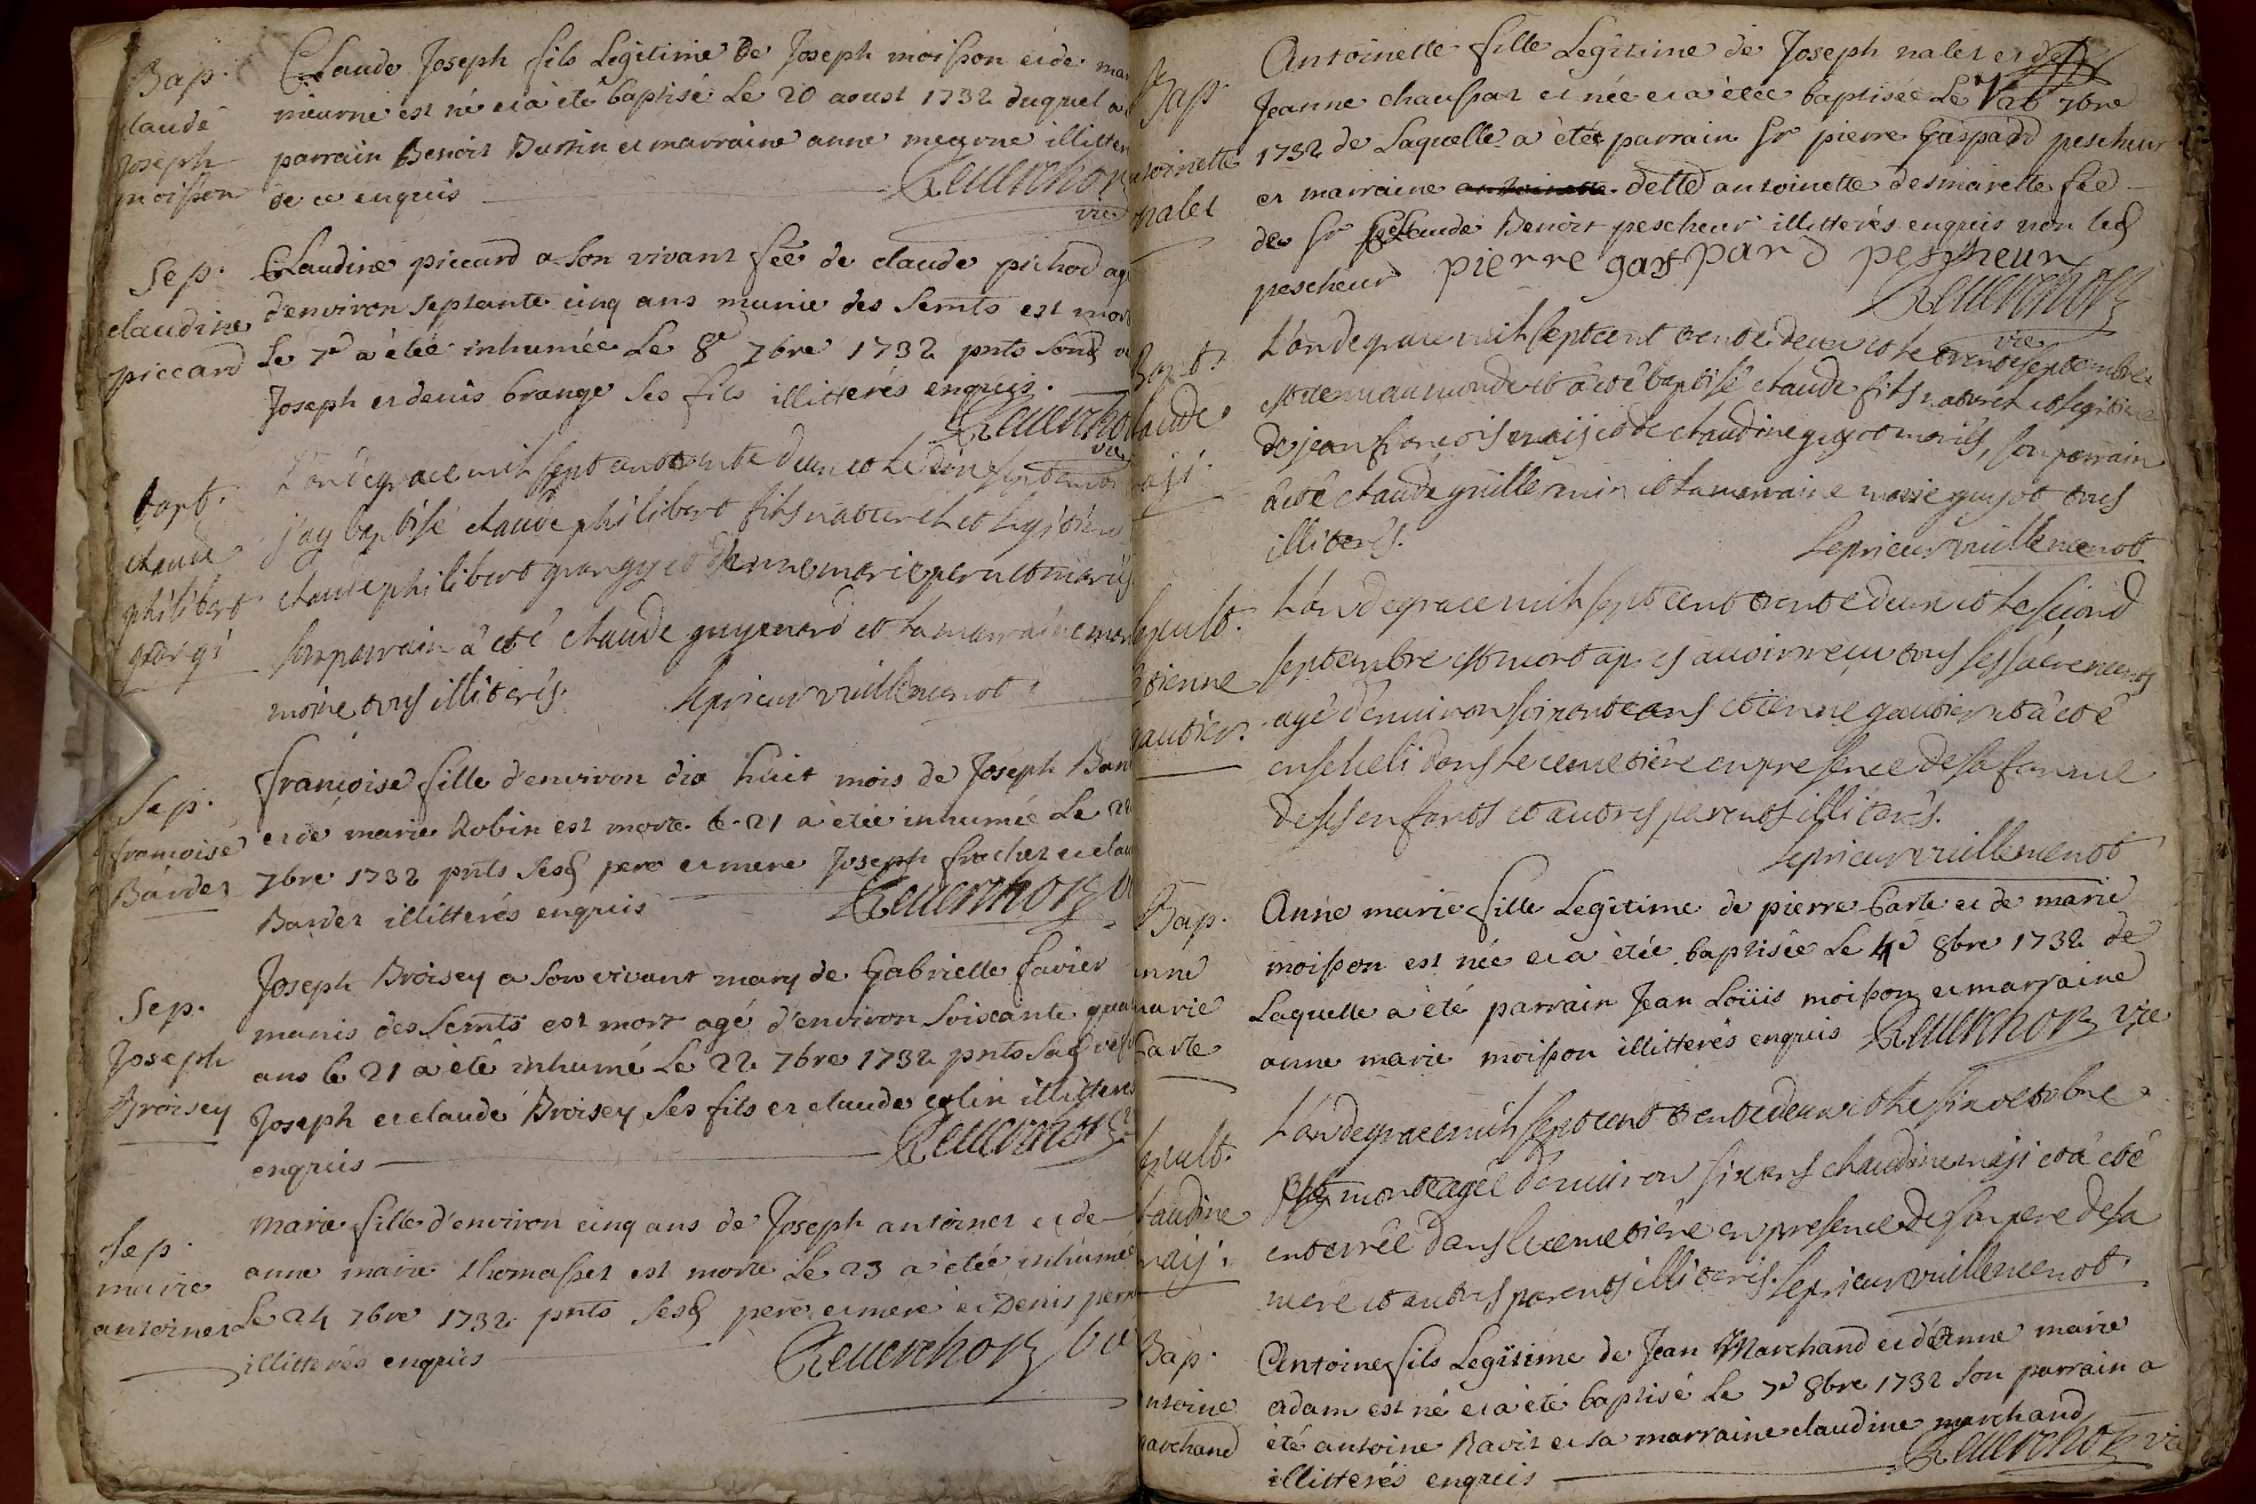 Bap.
Claude
Joseph
moisson
Claude Joseph fils Legitime de Joseph moisson et de
meurne est né et a été baptisé Le 20 aoust 1732 duquel a
parrain Benoit Burrin et marraine anne meurne illitter
de ce enquis
Reuerchon
vic
Sep.
claudine
piccard
Claudine piccard a son vivant fẽe de claude pichod
d'environ septante cinq ans munie des Semts est
Le 7e a étée inhumée Le 8e 7bre 1732 pnts
Joseph et denis brange ses fils illitterés enquis.
Reuerchon
vic
bapt.
claude
philibert
grangi
L'an de grace mil sept cent trente deux et le
j'ay baptisé claude philibert fils naturel et legitime
claude philibert grangy et d'anne marie perut mariés
son parrain â eté claude guyenard et la marraine
moine tous illiterés. le prieur vuillemenot
Sep.
francoise
Bardet
francoise fille d'environ dix huit mois de Joseph
et de marie Robin est morte le 21 a étée inhumée Le
7bre 1732 pnts sesd pere et mere Joseph frochet et
Bardet illitterés enquis
Reuerchon
Sep.
Joseph
Broisey
Joseph Broisey a son vivant mary de Gabrielle favier
munis des Semts est mort agé d'environ soixante
ans le 21 a été inhumé Le 22 7bre 1732 pnts
Joseph et claude Broisey ses fils et claude colin illitterés
enquis
Reuerchon
Sep.
marie
antoinet
marie fille d'environ cinq ans de Joseph antoinet et de
anne marie thomasset est morte Le 23 a étée inhumée
Le 24 7bre 1732 pnts sesd pere et mere et Denis
illitterés enquis
Reuerchon vic
Bap.
toinette
nalet
Antoinette fille Legitime de Joseph nalet et de
Jeanne chaussat et née et a étée baptisée Le 7bre
1732 de Laquelle a été parrain Sr pierre Gaspard pescheur
et marraine delle antoinette desmarette fẽe
de Sr Claude Benoit pescheur illitterés enquis non led
pescheur pierre gaspard pescheur
Reuerchon
vic
Bapt.
laude
L'an de grace mil sept cent trente deux et le trente septembre
est venu au monde et â eté baptisé claude fils naturel et legitime
de jean francois et de claudine guyot mariés, son parrain
â eté claude guillemin et la marraine marie guyot tous
illiterés.
le prieur vuillemenot
sepult.
etienne
gautier.
L'an de grace mil sept cent trente deux et le second
septembre est mort apres avoir receu tous ses sâcrements
agé d'environ soixante ans etienne gautier et â eté
enseheli dans le cemetière en presence de sa femme
de ses enfants et autres parents illiterés.
le prieur vuillemenot
Bap.
anne
marie
Carle
Anne marie fille Legitime de pierre Carle et de marie
moisson est née et a étée baptisée Le 4e 8bre 1732 de
Laquelle a été parrain Jean Loüis moisson et marraine
anne marie moisson illitterés enquis Reuerchon vic
sepult.
laudine
L'an de grace mil sept cent trente deux et le six octobre
est morte agée d'environ six ans claudine et â eté
enterrée dans le cemetière en presence de son pere de sa
mere et autres parents illiterés. le prieur vuillemenot.
Bap.
ntoine
archand
Antoine fils Legitime de Jean Marchand et d'Anne marie
adam est né et a été baptisé Le 7e 8bre 1732 son parrain a
été antoine Ravit et sa marraine claudine marchand
illitterés enquis
Reuerchon vic